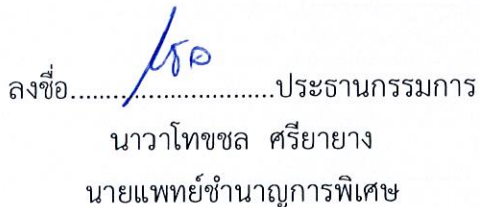 ลงชื่อ............................ประธานกรรมการ
นาวาโทขชล ศรียายาง
นายแพทย์ชำนาญการพิเศษ